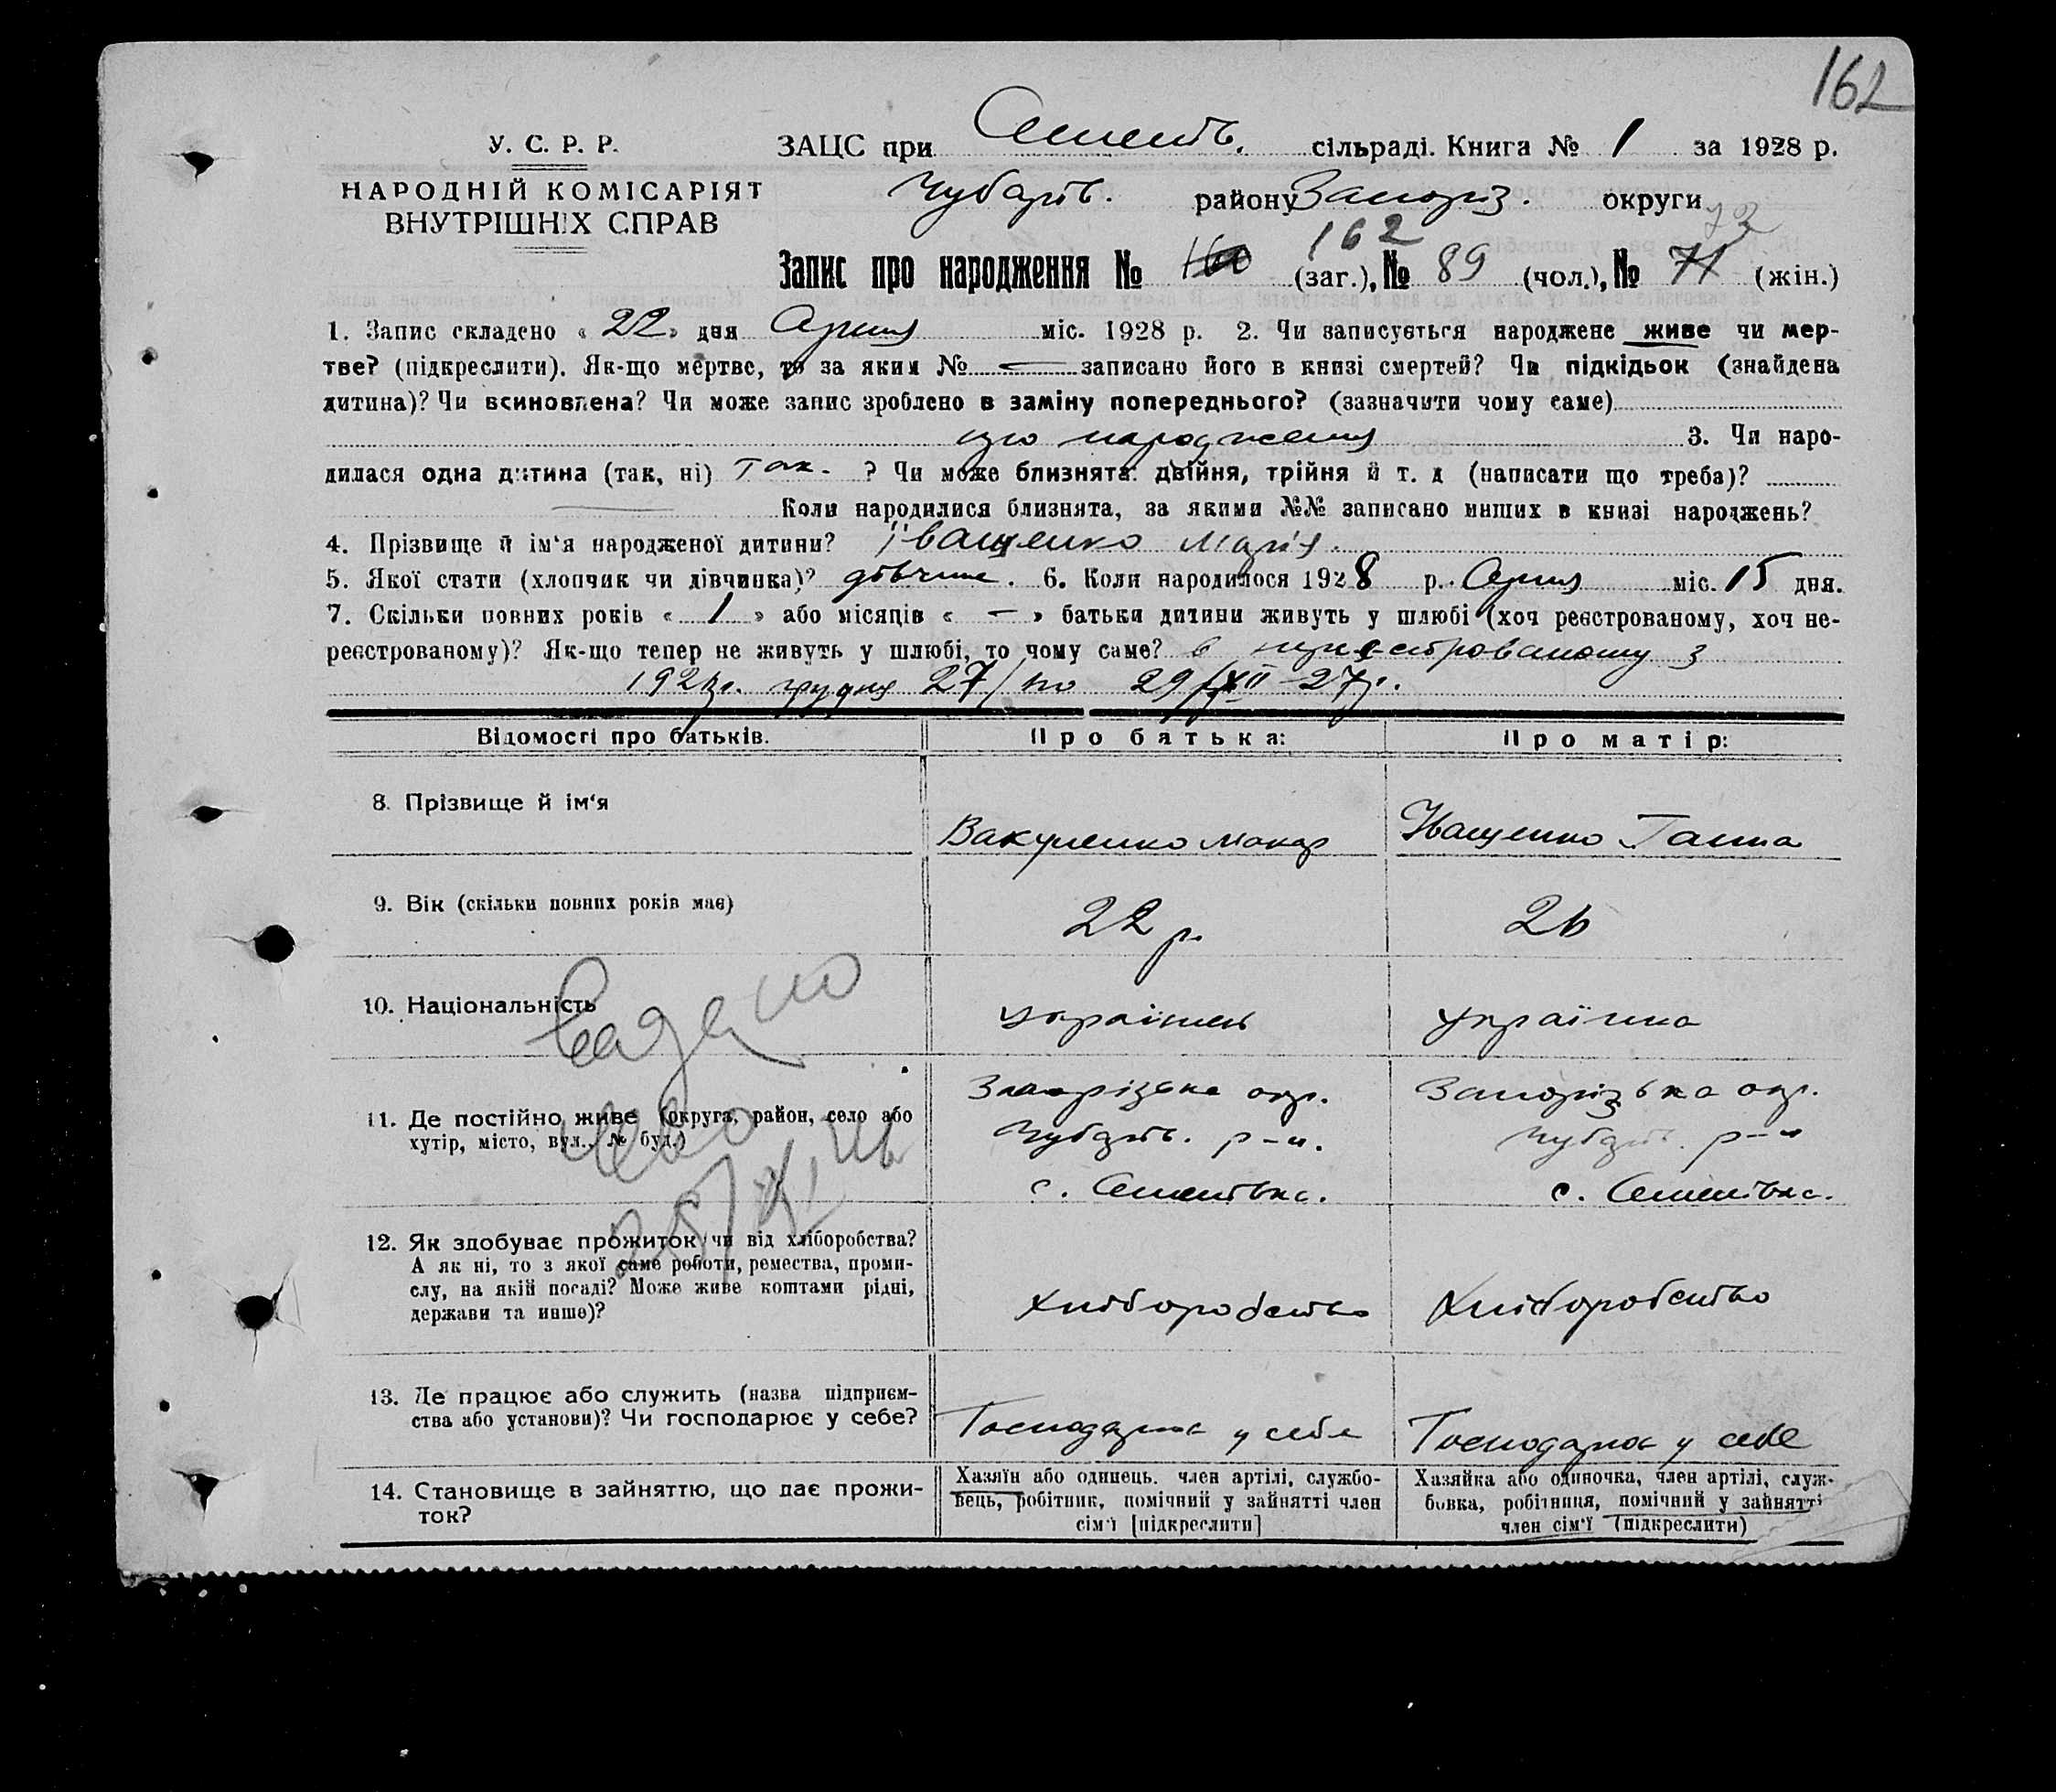 162
У. С. Р. Р.
НАРОДНІЙ КОМІСАРІЯТ
ВНУТРІШНІХ СПРАВ
ЗАЦС при Семенів. сільраді. Книга № 1 за 1928 р.
Чубарів. району Запоріз. округи
162 73
Запис про народження № 160 (заг.), № 89 (чол.), № 71 (жін.)
1. Запис складено « 22 » дня міс. 1928 р. 2. Чи записується народжене живе чи мер-
тве? (підкреслити). Як-що мертве, то за яким № — записано його в книзі смертей? Чи підкідьок (знайдена
дитина)? Чи всиновлена? Чи може запис зроблено в заміну попереднього? (зазначити чому саме)
народження 3. Чи наро-
дилася одна дитина (так, ні) так. ? Чи може близнята: двійня, трійня й т. д (написати що треба)?
— Коли народилися близнята, за якими №№ записано инших в книзі народжень?
4. Прізвище й ім'я народженої дитини? Іващенко Марія.
5. Якої стати (хлопчик чи дівчинка)? дівчина. 6. Коли народилося 1928 р. міс. 15 дня.
7. Скільки повних років « 1 » або місяців « — » батьки дитини живуть у шлюбі (хоч реєстрованому, хоч не-
реєстрованому)? Як-що тепер не живуть у шлюбі, то чому саме? в з
грудня 27/ по 29/XII-27р.
Відомості про батьків. Про батька: Про матір:
8. Прізвище й ім'я Вакуленко Макар Іващенко Ганна
9. Вік (скільки повних років має) 22 р. 26
10. Національність українець українка
11. Де постійно живе (округа, район, село або
хутір, місто, вул., № буд.)
Запорізька окр. Запорізька окр.
Чубарів. р-н. Чубарів. р-н
с. Семенівка. с. Семенівка.
12. Як здобуває прожиток чи від хліборобства?
А як ні, то з якої саме роботи, ремества, проми-
слу, на якій посаді? Може живе коштами рідні,
держави та инше)?
хліборобство хліборобство
13. Де працює або служить (назва підприєм-
ства або установи)? Чи господарює у себе?
Господарює у себе Господарює у себе
14. Становище в зайняттю, що дає прожи-
ток?
Хазяїн або одинець. член артілі, службо-
вець, робітник, помічний у зайнятті член
сім'ї [підкреслити]
Хазяйка або одиночка, член артілі, служ-
бовка, робітниця, помічний у зайнятті
член сім'ї (підкреслити)